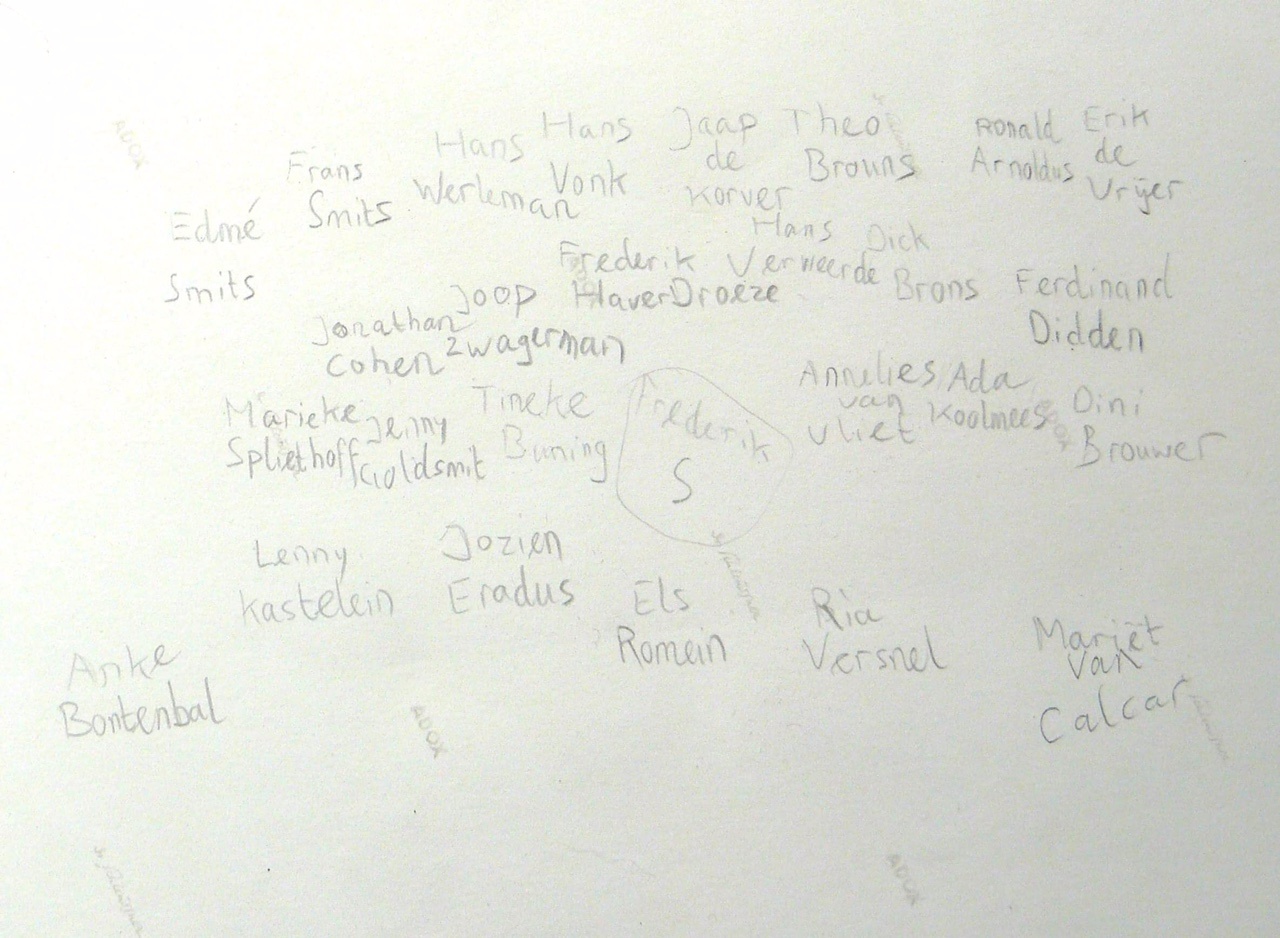 Hans Hans Jaap Theo Ronald Erik
Frans Werleman Vonk de Brouns Arnoldus de
Edmé Smits Korver Vrijer
Smits Hans Dick
Frederik Verweerde Brons Ferdinand
Joop HaverDroeze Didden
Jonathan Zwagerman
Cohen
Marieke Jenny Tineke Frederik Annelies Ada Dini
Spliethoff Goldsmit Buning S van Koolmees Brouwer
Vliet
Lenny Jozien
Kastelein Eradus Els Ria Mariët
Anke Romein Versnel van
Bontenbal Calcar
ADOX
ADOX
ADOX